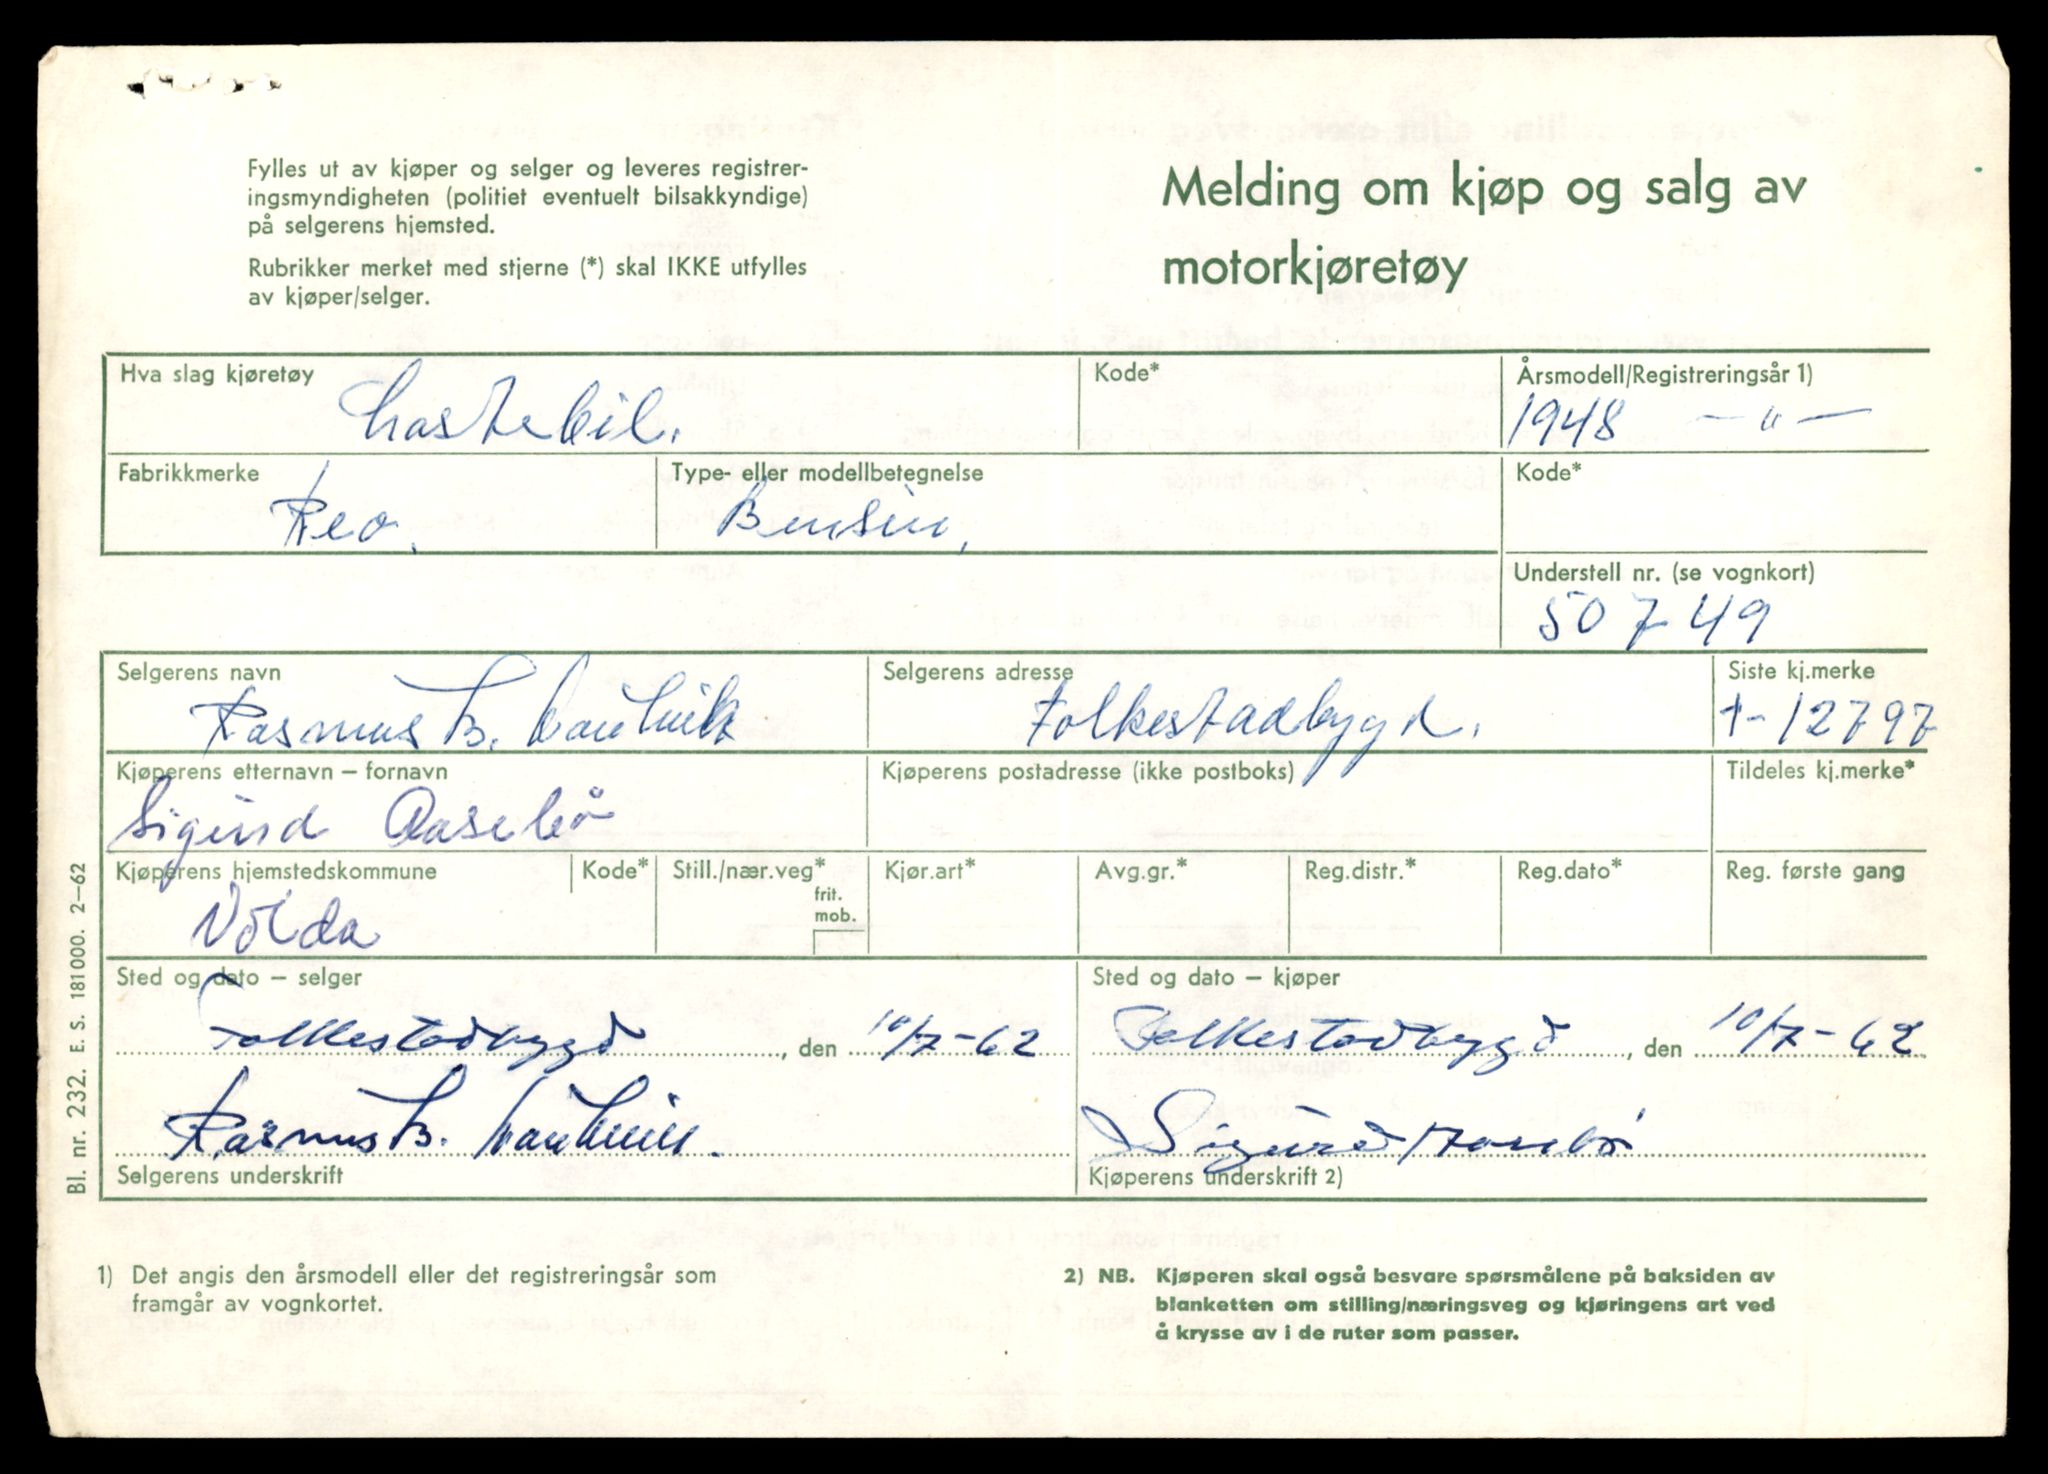 Fylles ut av kjøper og selger og leveres registrer-
ingsmyndigheten (politiet eventuelt bilsakkyndige)
på selgerens hjemsted.
Rubrikker merket med stjerne (*) skal IKKE utfylles
av kjøper/selger.
Melding om kjøp og salg av
motorkjøretøy
Hva slag kjøretøy
Lastebil.
Kode*
Årsmodell/Registreringsår 1)
1948 —"—
Fabrikkmerke
Reo.
Type- eller modellbetegnelse
Bensin.
Kode*
Understell nr. (se vognkort)
50749
Selgerens navn
Rasmus B.
Selgerens adresse
Folkestadbygd.
Siste kj.merke
T-12797
Kjøperens etternavn – fornavn
Sigurd Aasebö
Kjøperens postadresse (ikke postboks)
Tildeles kj.merke*
Kjøperens hjemstedskommune
Volda
Kode*
Still./nær.veg*
frit.
mob.
Kjør.art*
Avg.gr.*
Reg.distr.*
Reg.dato*
Reg. første gang
Sted og dato – selger
Folkestadbygd, den 10/7-62
Rasmus B.
Selgerens underskrift
Sted og dato – kjøper
Folkestadbygd, den 10/7-62
Sigurd Aasebö
Kjøperens underskrift 2)
Bl. nr. 232. E. S. 181000. 2–62
1) Det angis den årsmodell eller det registreringsår som
framgår av vognkortet.
2) NB. Kjøperen skal også besvare spørsmålene på baksiden av
blanketten om stilling/næringsveg og kjøringens art ved
å krysse av i de ruter som passer.